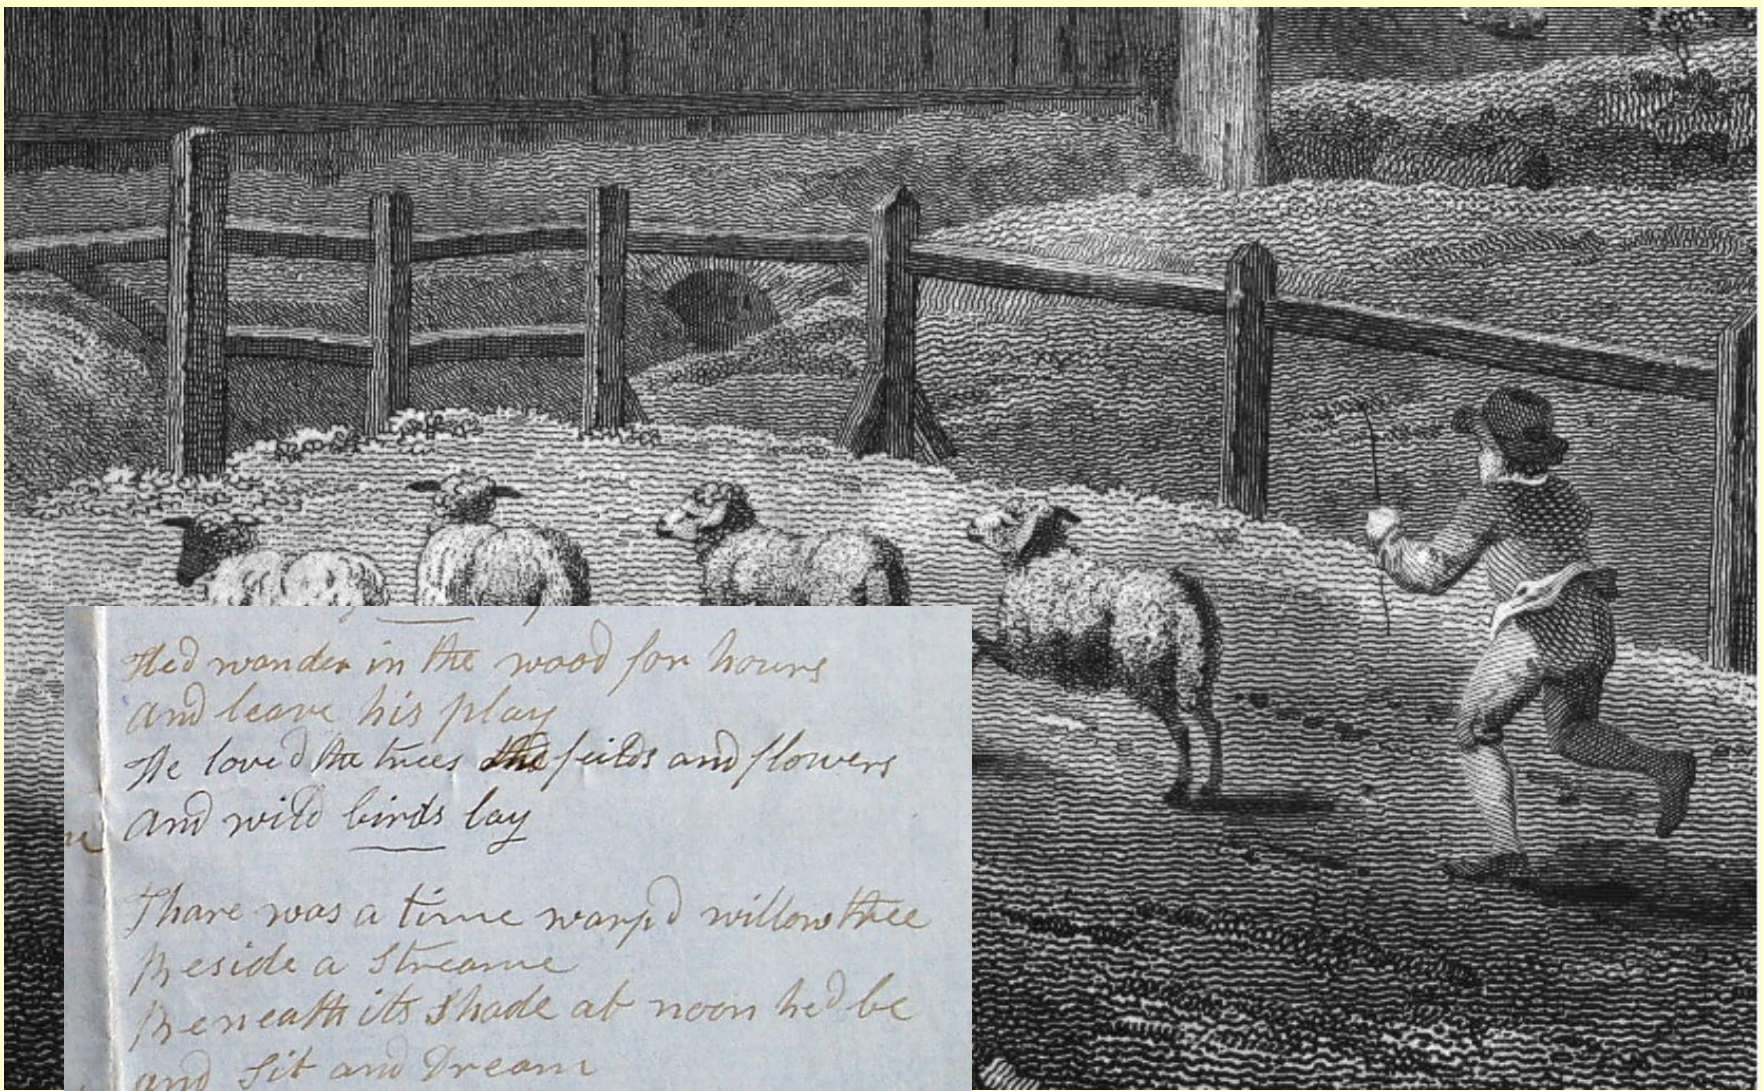 Hed wander in the wood for hours
and leave his play
He loved the trees feilds and flowers
and wild birds lay
Thare was a time warpd willow tree
Beside a Streame
Beneath its Shade at noon hed be
and Sit and Dream